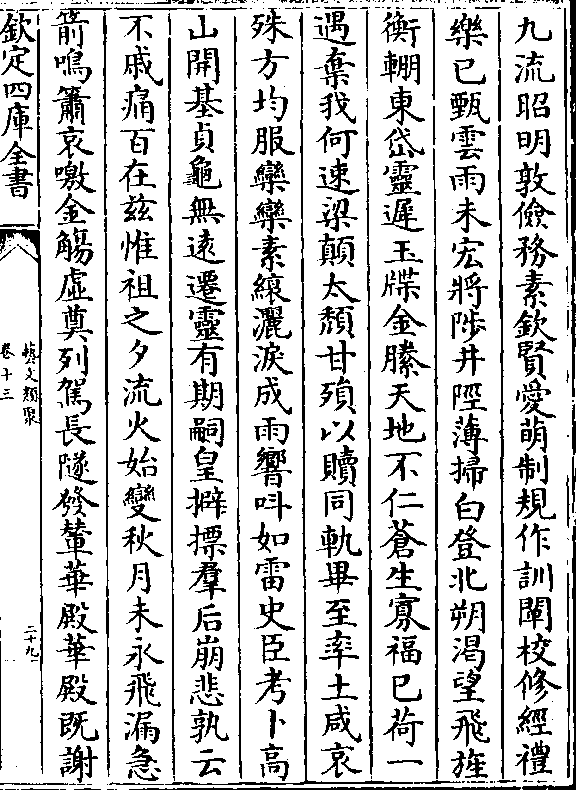 九流昭明敦儉務素欽賢愛萌制規作訓闡校修經禮
樂已甄雲雨未宏將陟井陘薄掃白登北朔渇望飛旌
衡輣東岱靈遲玉牒金縢天地不仁蒼生寡福已荷一
遇棄我何速梁顛太頽甘殞以贖同軌畢至率土咸哀
殊方均服欒欒素縗灑淚成雨響叫如雷史臣考卜高
山開基貞龜無逺遷靈有期嗣皇擗摽羣后崩悲孰云
不戚痛百在兹惟祖之夕流火始變秋月未永飛漏急
箭鳴簫哀噭金觴虛奠列駕長隧發輦華殿華殿既謝
欽定四庫全書
藝文類聚
卷十三
二十九